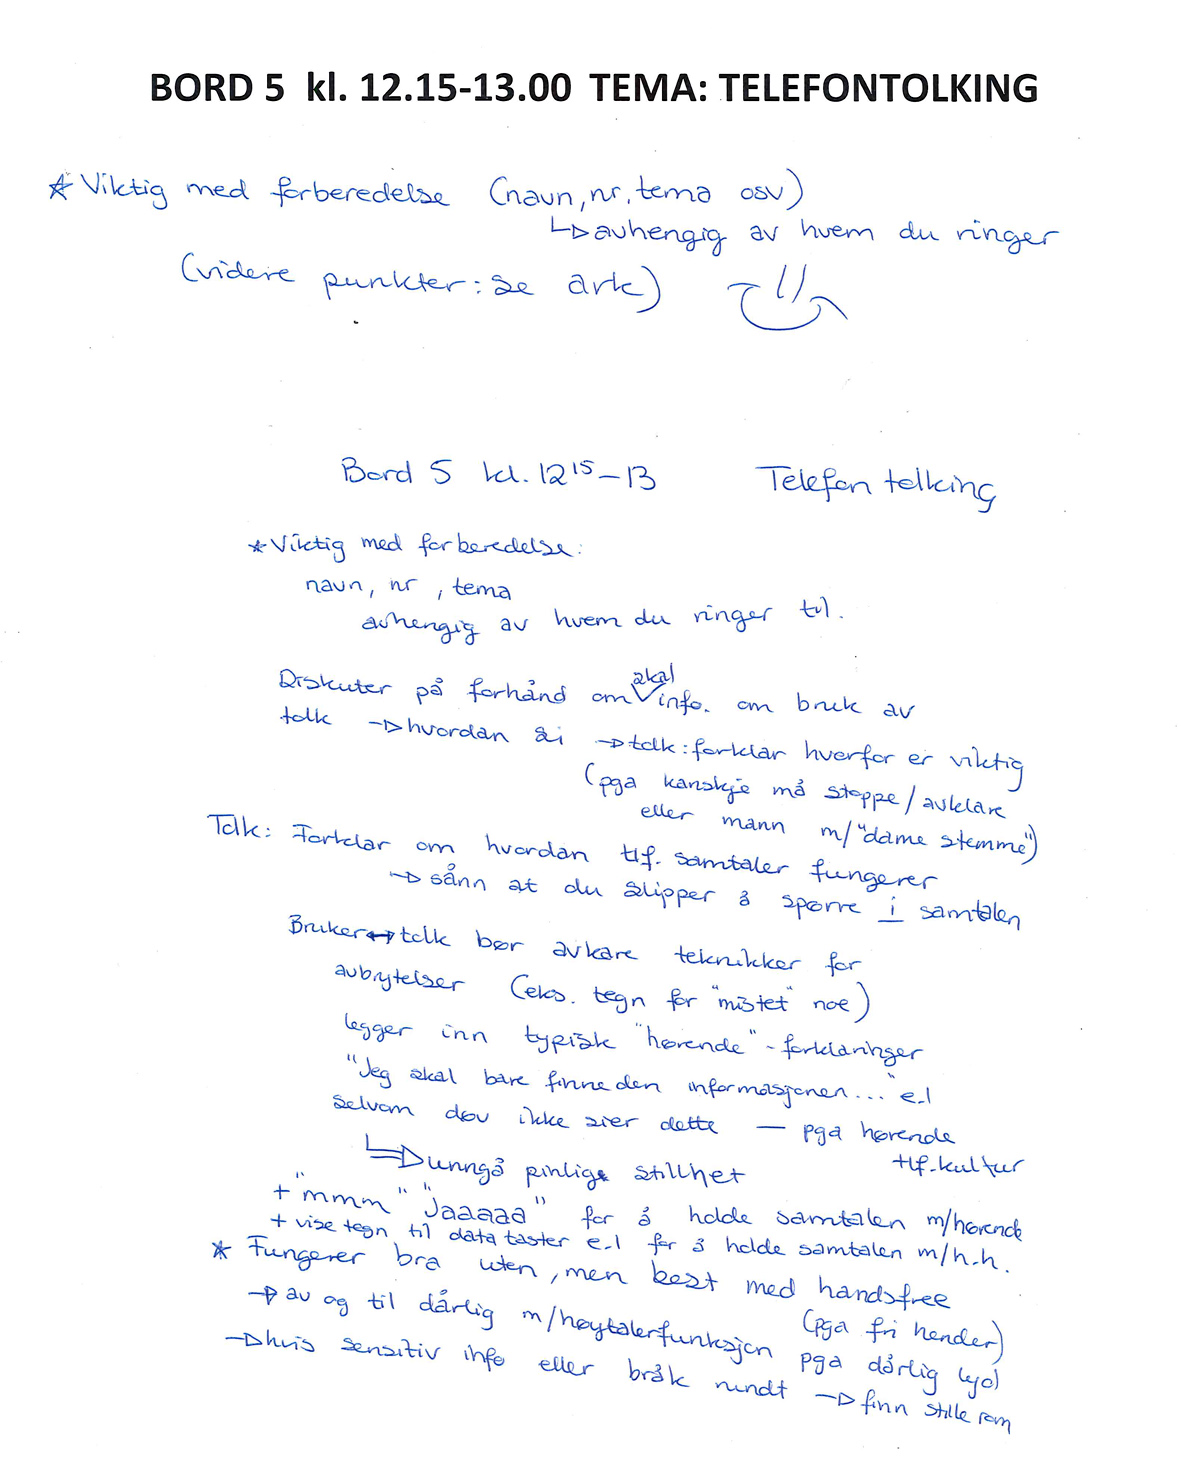 BORD 5 kl. 12.15-13.00 TEMA: TELEFONTOLKING
* Viktig med forberedelse (navn, nr, tema osv)
↳ avhengig av hvem du ringer
(videre punkter: se ark)
Bord 5 kl. 12¹⁵-13 Telefontolking
* Viktig med forberedelse:
navn, nr, tema
avhengig av hvem du ringer til.
skal
Diskuter på forhånd om ✓ info. om bruk av
tolk → hvordan si → tolk: forklar hvorfor er viktig
(pga kanskje må stoppe/avklare
eller mann m/"dame stemme")
Tolk: Forklar om hvordan tlf. samtaler fungerer
→ sånn at du slipper å spørre i samtalen
Bruker ↔ tolk bør avkare teknikker for
avbrytelser (eks. tegn for "mistet" noe)
legger inn typisk "hørende"-forklaringer
"Jeg skal bare finne den informasjonen..." e.l
selvom døv ikke sier dette — pga hørende
tlf.kultur
↳ unngå pinlige stillhet
+ "mmm" "Jaaaaa" for å holde samtalen m/hørende
+ vise tegn til data taster e.l for å holde samtalen m/h.h.
* Fungerer bra uten, men best med handsfree
(pga fri hender)
→ av og til dårlig m/høytalerfunksjon pga dårlig lyd
→ hvis sensitiv info eller bråk rundt → finn stille rom